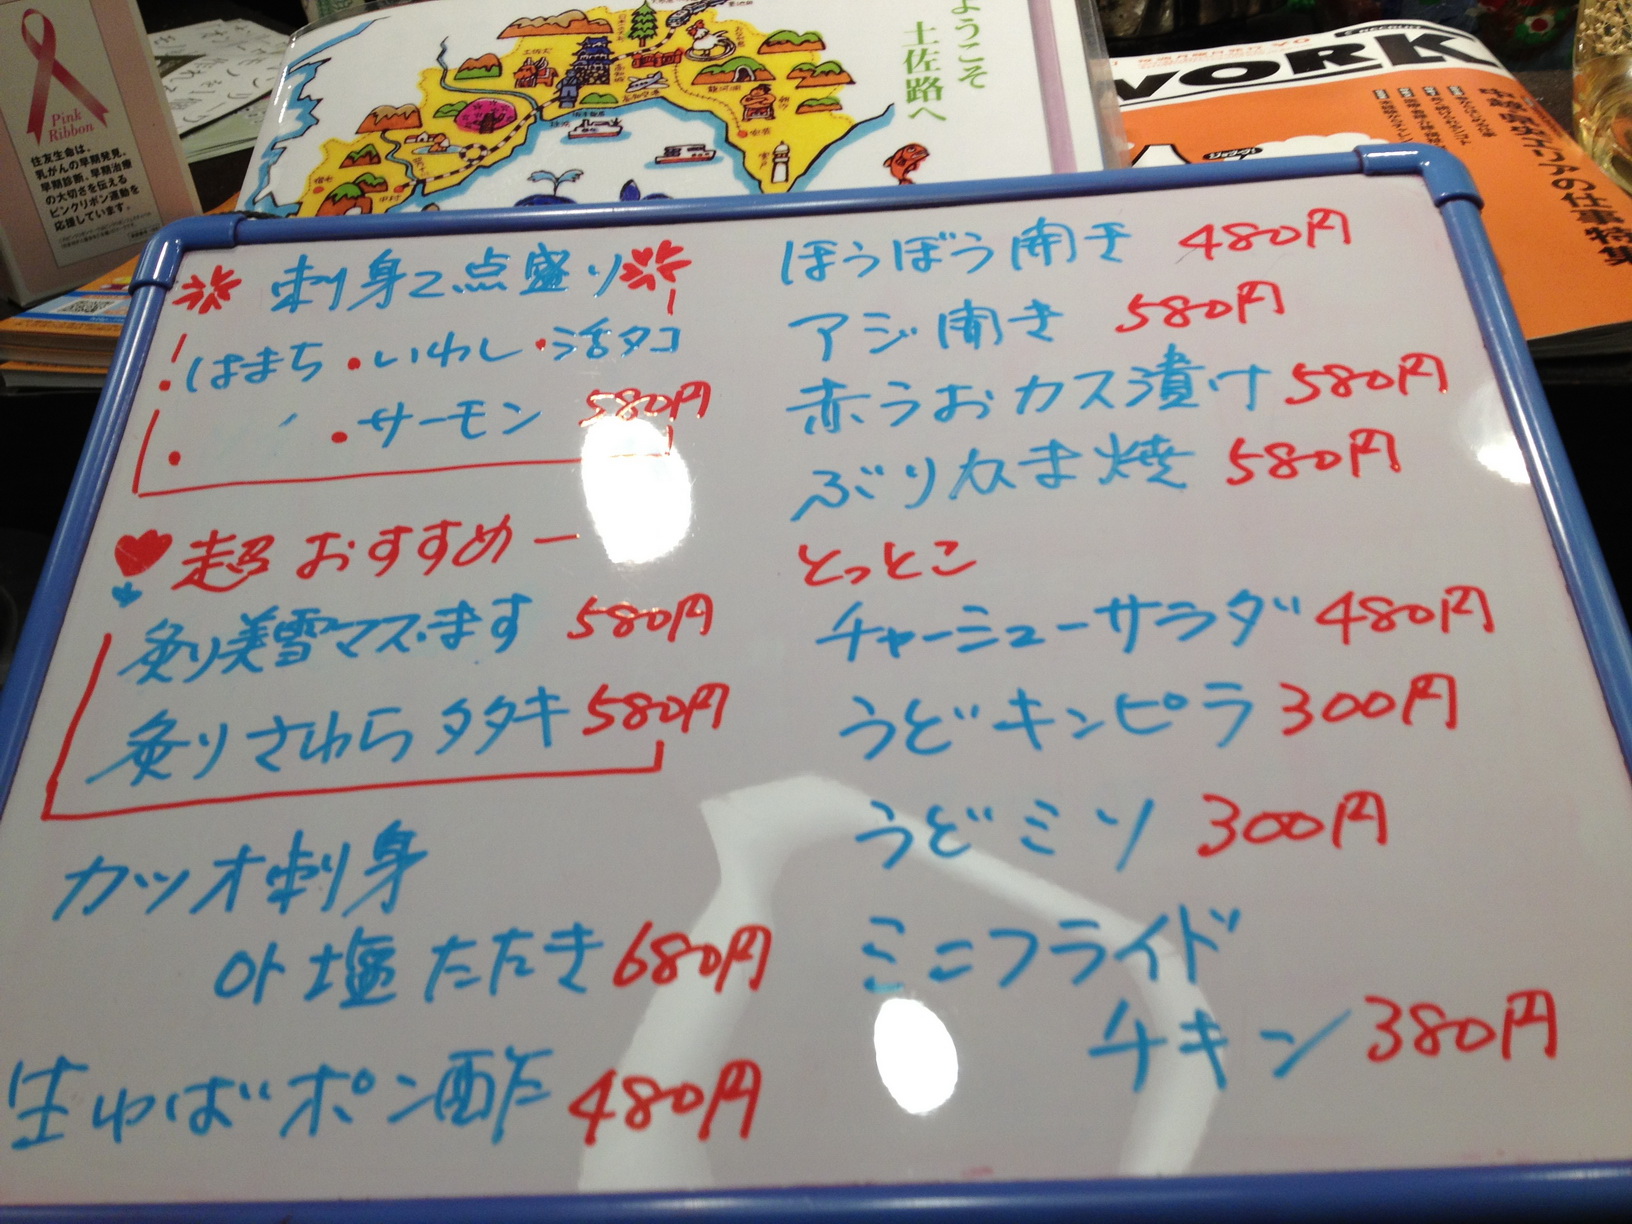 Pink
Ribbon
住友生命は、
乳がんの早期発見、
早期診断、早期治療
の大切さを伝える
ピンクリボン運動を
応援しています。
ようこそ
土佐路へ
WORK
の仕事特集
刺身2点盛り
はまち・いわし・活タコ
・サーモン 580円
超おすすめー
炙り美雪マスます 580円
炙りさわらタタキ 580円
カツオ刺身
or塩たたき 680円
生ゆばポン酢 480円
ほうぼう開き 480円
アジ開き 580円
赤うおカス漬け 580円
ぶりカま焼 580円
とっとこ
チャーシューサラダ 480円
うどキンピラ 300円
うどミソ 300円
ミニフライド
チキン 380円